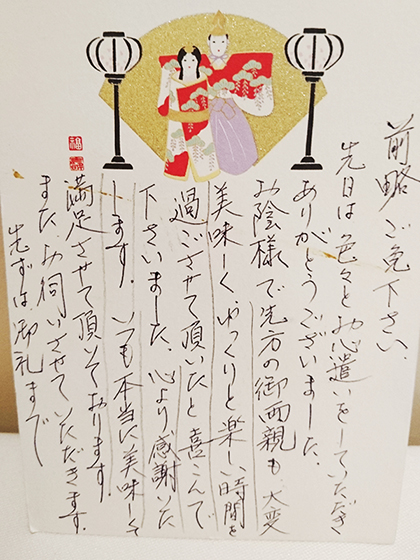 前略 ご免下さい。
先日は色々とお心遣いをしていただき
ありがとうございました。
お陰様で先方の御両親も大変
美味しく、ゆっくりと楽しい時間を
過ごさせて頂いたと喜こんで
下さいました。心より感謝いた
します。いつも本当に美味しくて
満足させて頂いております。
また、お伺いさせていただきます。
先ずは御礼まで